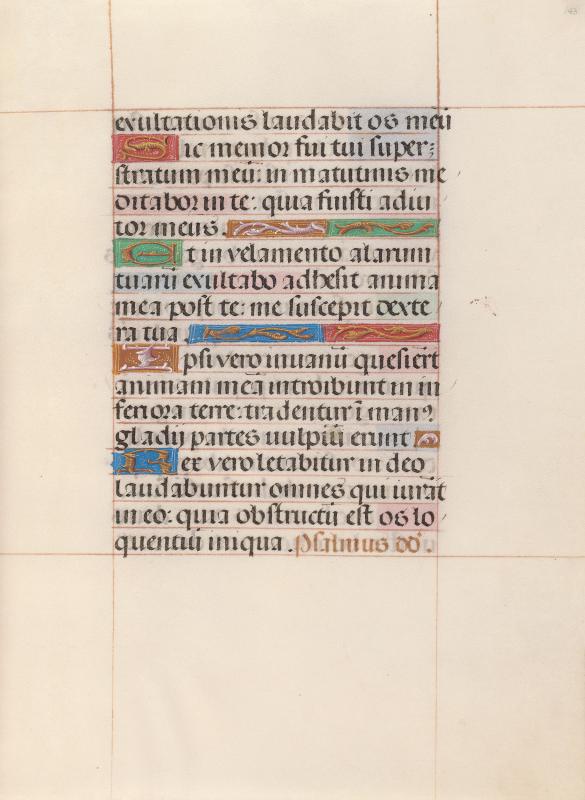 exultationis laudabit os meū
Sic memor fui tui super
stratum meū: in matutinis me
ditabor in te: quia fuisti adiu
tor meus.
Et in velamento alarum
tuarū exultabo adhesit anima
mea post te: me suscepit dexte
ra tua.
Ipsi vero inuanū quesierūt
animam meā introibunt in in
feriora terre: tradentur ī manꝰ
gladij partes uulpiū erunt
Rex vero letabitur in deo
laudabuntur omnes qui iurāt
in eo: quia obstructū est os lo
quentiū iniqua. Psalmus dd.